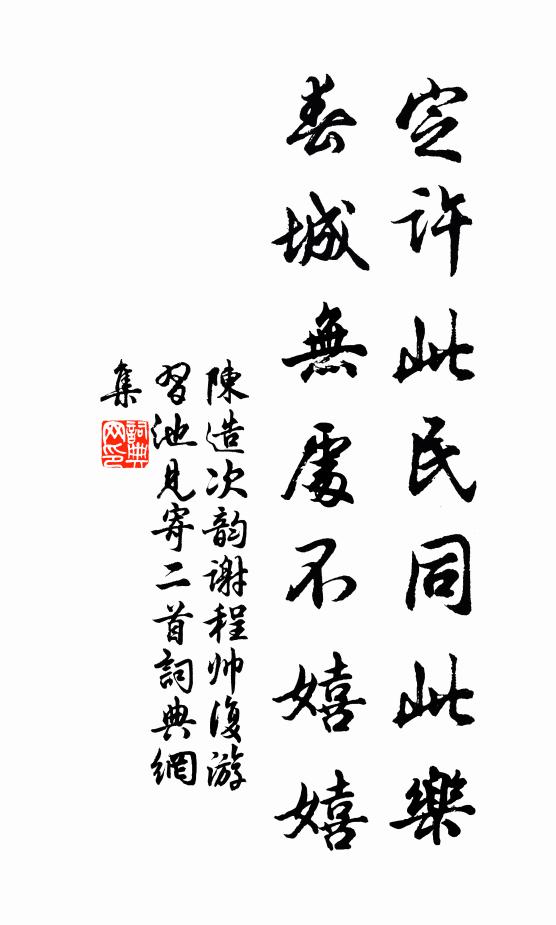 定許此民同此樂
春城無處不嬉嬉
陳造次韵謝程帅復游
習池見寄二首詞典網
集
詞典
网印